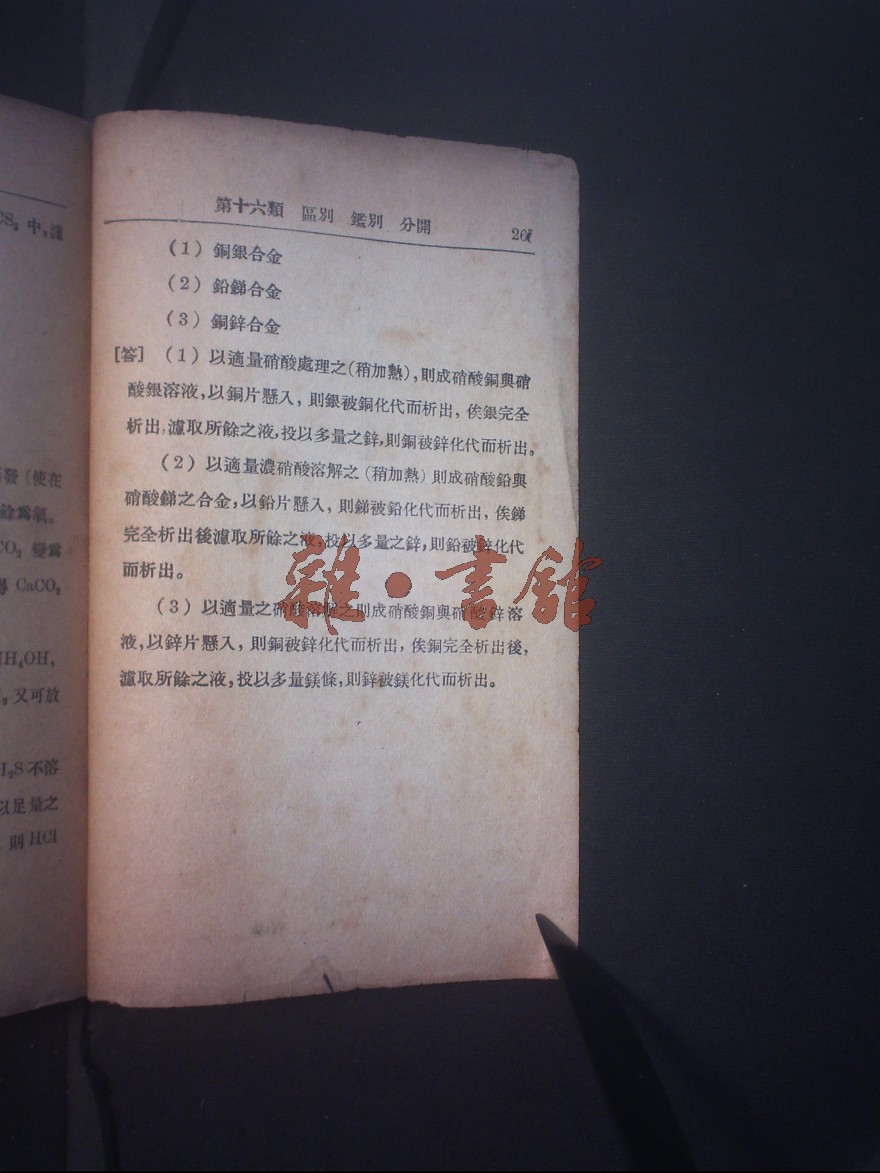 CS₂ 中,濾
發（使在
餘爲氧。
CO₂ 變爲
得 CaCO₃
NH₄OH,
又可放
H₂S不溶
以足量之
則HCl
第十六類 區別 鑑別 分開 267
(1) 銅銀合金
(2) 鉛銻合金
(3) 銅鋅合金
[答] (1) 以適量硝酸處理之(稍加熱),則成硝酸銅與硝
酸銀溶液,以銅片懸入,則銀被銅化代而析出,俟銀完全
析出,濾取所餘之液,投以多量之鋅,則銅被鋅化代而析出。
(2) 以適量濃硝酸溶解之(稍加熱)則成硝酸鉛與
硝酸銻之合金,以鉛片懸入,則銻被鉛化代而析出,俟銻
完全析出後濾取所餘之液,投以多量之鋅,則鉛被鋅化代
而析出。
(3) 以適量之硝酸溶解之則成硝酸銅與硝酸鋅溶
液,以鋅片懸入,則銅被鋅化代而析出,俟銅完全析出後,
濾取所餘之液,投以多量鎂條,則鋅被鎂化代而析出。
雜·書館